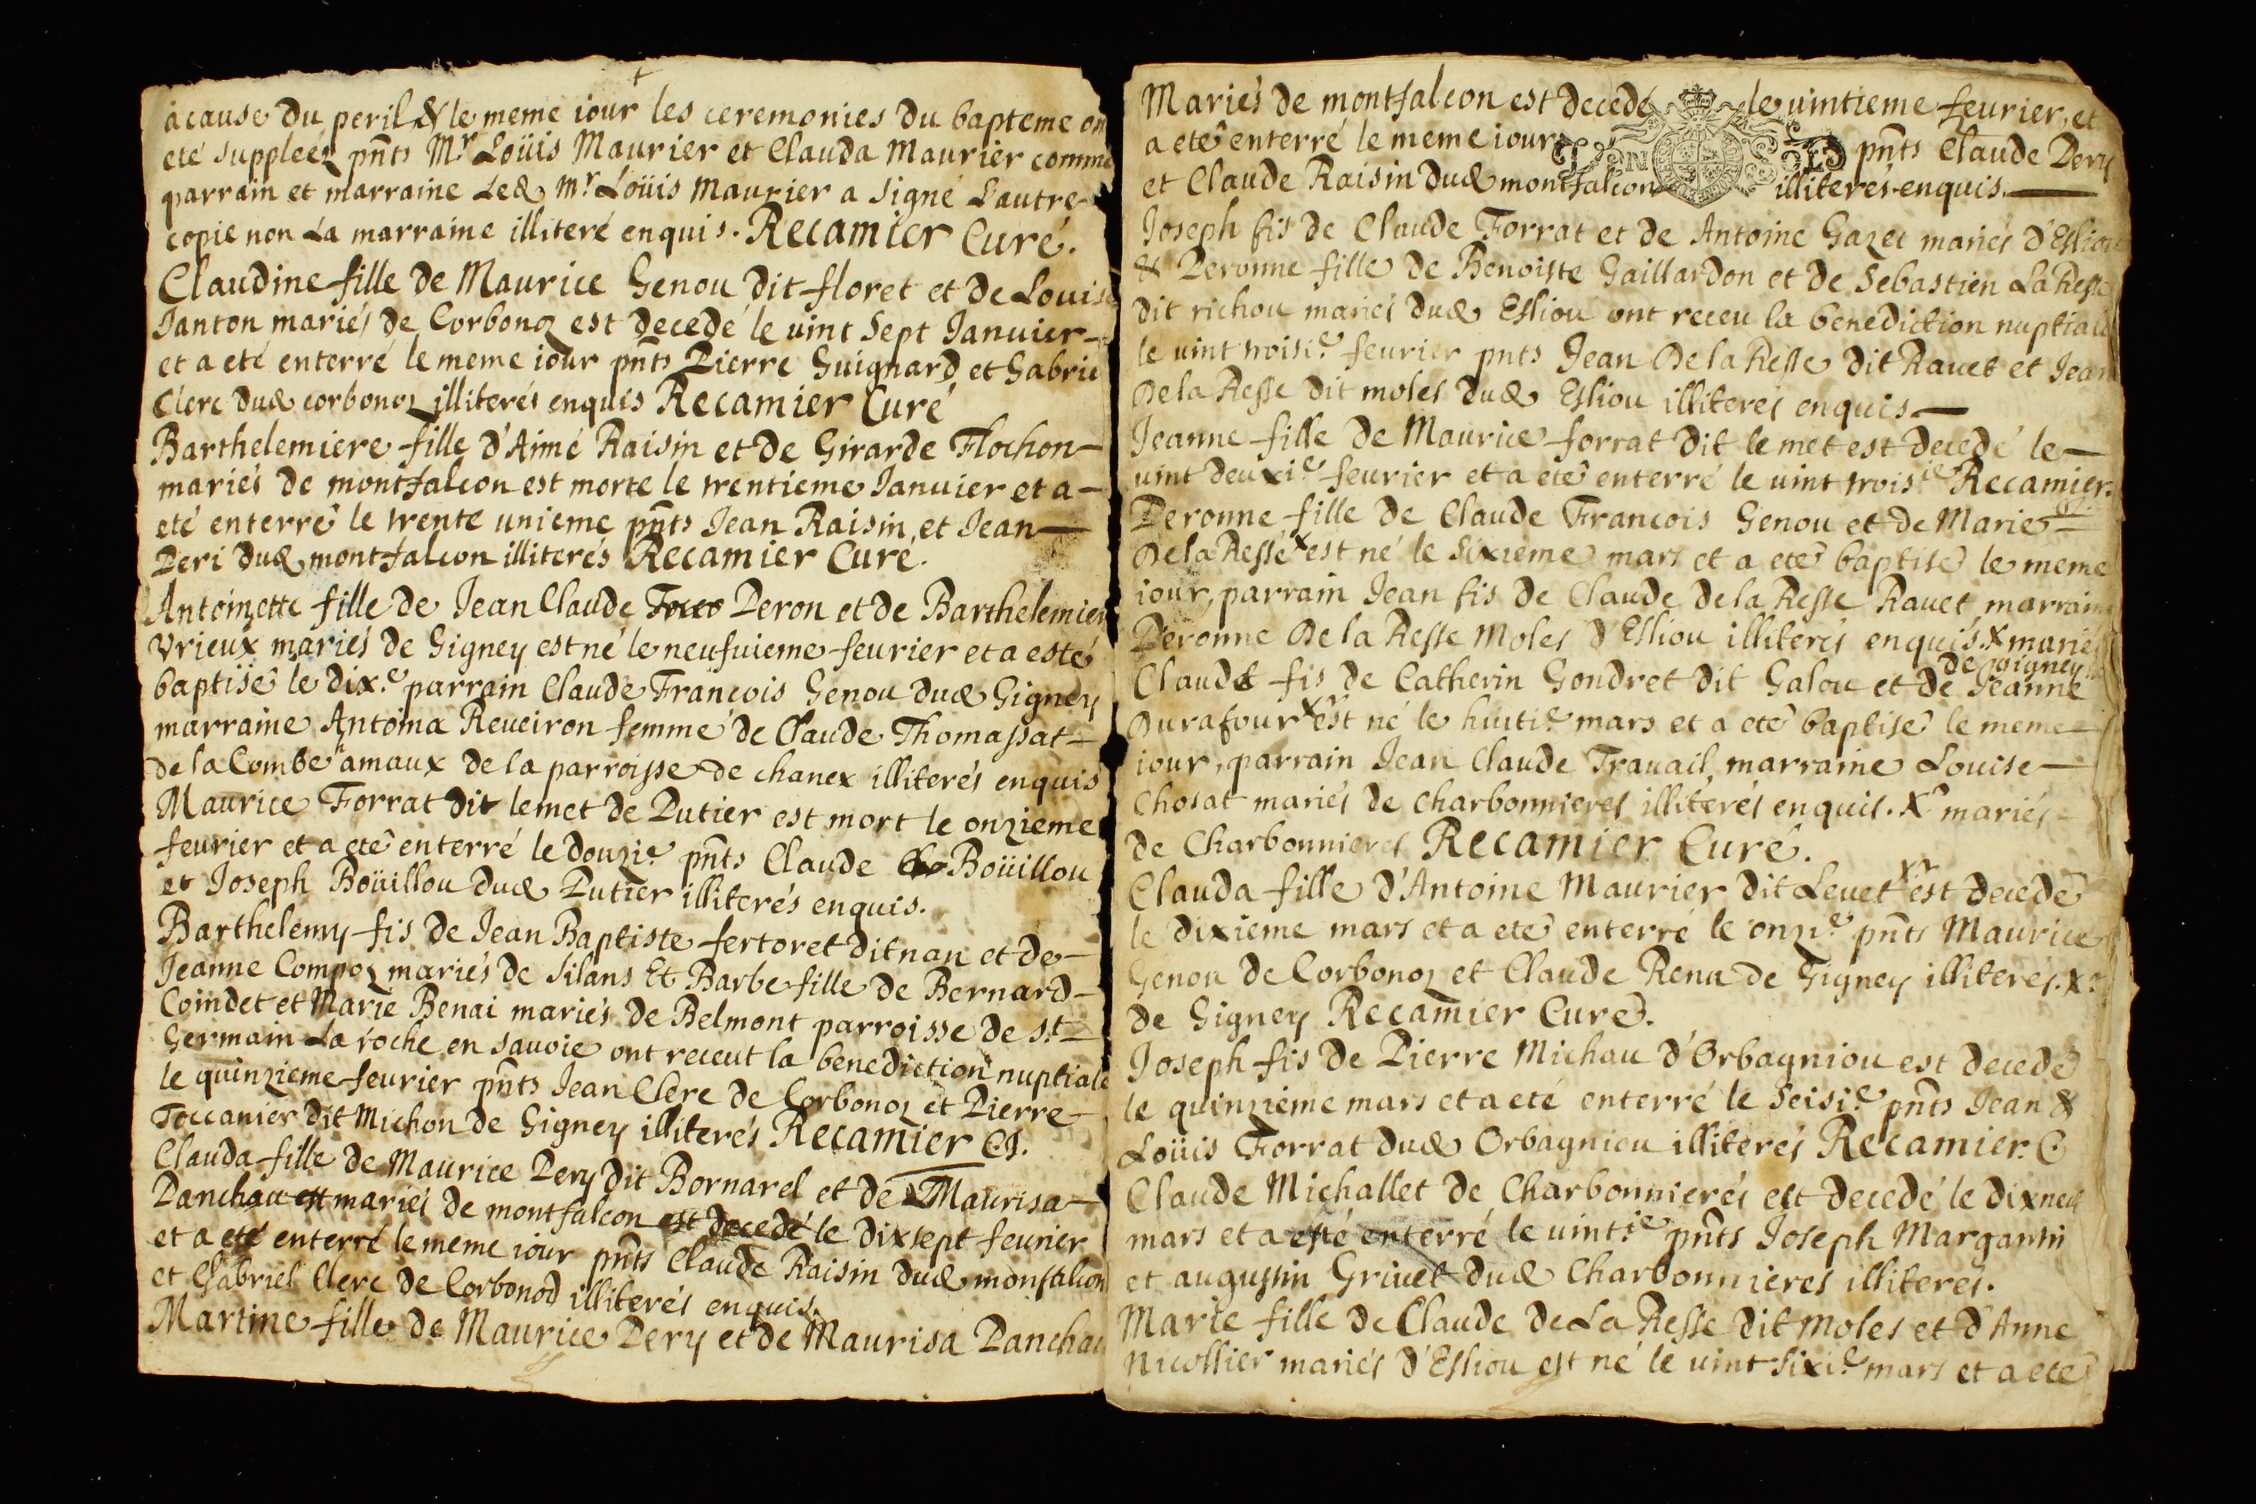 acause du peril & le meme iour les ceremonies du bapteme on
eté suppleéz pñts Mr Loüis Maurier et Clauda Maurier comme
parrain et marraine Led Mr Loüis Maurier a signé L'autre
copie non La marraine illiteré enquis. Recamier Curé.
Claudine fille de Maurice Genou dit floret et de Louise
Janton mariés de Corbonoz est decedé le uint sept Januier
et a eté enterré le meme iour pñts Pierre Guignard et Gabrie
Clerc dud corbonoz illiterés enquis Recamier Curé
Barthelemiere fille d'Aimé Raisin et de Girarde Flochon
mariés de montfalcon est morte le trentieme Januier et a
eté enterré le trente unieme pñts Jean Raisin, et Jean
Peri dud montfalcon illiterés Recamier Cure.
Antoinette fille de Jean Claude Peron et de Barthelemier
Vrieux mariés de Gigney est né le neufuieme feurier et a esté
baptisé le dix.e parrain Claude François Genou dud Gigney
marraine Antoina Reueiron femme de Claude Thomassat
de la Combe amaux de la parroisse de chanex illiterés enquis
Maurice Forrat dit lemet de Putier est mort le onzieme
feurier et a eté enterré le douzi.e pñts Claude Boüillou
et Joseph Boüillou dud Putier illiterés enquis.
Barthelemy fis de Jean Baptiste fertoret dit nan et de
Jeanne Compoz mariés de silans Et Barbe fille de Bernard
Coindet et Marie Benai mariés de Belmont parroisse de s.t
Germain La roche en sauoie ont receut la benediction nuptiale
le quinzieme feurier pñts Jean Clerc de Corbonoz et Pierre
Toccanier dit Michon de Gigney illiterés Recamier C.
Clauda fille de Maurice Pery dit Bornarel et de Maurisa
Panchau est mariés de montfalcon est decedé le dixsept feurier
et a eté enterré le meme iour pñts Claude Raisin dud montfalcon
et Gabriel Clerc de Corbonod illiterés enquis.
Martine fille de Maurice Pery et de Maurisa Panchau
Mariés de montfalcon est decedé le uintieme feurier, et
a eté enterré le meme iour pñts Claude Pery
et Claude Raisin dud montfalcon illiterés enquis.
Joseph fis de Claude Forrat et de Antoine Gazet mariés d'Esliou
& Peronne fille de Benoiste Gaillardon et de Sebastien La Resse
dit richou mariés dud Esliou ont receu la benediction nuptiale
le uint troisi.e feurier pnts Jean De la Resse dit Rauet et Jean
De la Resse dit moles dud Esliou illiterés enquis
Jeanne fille de Maurice forrat dit le met est decedé le
uint deuxi.e feurier et a eté enterré le uint trois.e Recamier.
Peronne fille de Claude François Genou et de Marie
De la Resse x est né le sixieme mars et a eté baptisé le meme
iour, parrain Jean fis de Claude de la Resse Rauet, marraine
Peronne De la Resse Moles d'Esliou illiterés enquis. x mariés
de Gigney
Claude fis de Catherin Gondret dit Galou et de Jeanne
Durafour x est né le huiti.e mars et a eté baptisé le meme
iour, parrain Jean Claude Trauail, marraine Louise
Chosat mariés de charbonnieres illiterés enquis. X mariés
de Charbonnieres Recamier Curé.
Clauda fille d'Antoine Maurier dit Leuet x est decedé
le dixieme mars et a eté enterré le onzi.e pñts Maurice
Genou de Corbonoz et Claude Renu de Gigney illiterés. X
de Gigney Recamier Curé.
Joseph fis de Pierre Michau d'Orbagniou est decedé
le quinzieme mars et a eté enterré le seisi.e pñts Jean &
Loüis Forrat dud Orbagniou illiterés Recamier. C
Claude Michallet de Charbonnierés est decedé le dixneu
mars et a esté enterré le uinti.e pñts Joseph Margantin
et augustin Griuet dud Charbonnieres illiteres.
Marie fille de Claude de La Resse dit moles et d'Anne
Nicollier mariés d'Esliou est né le uint sixi.e mars et a eté